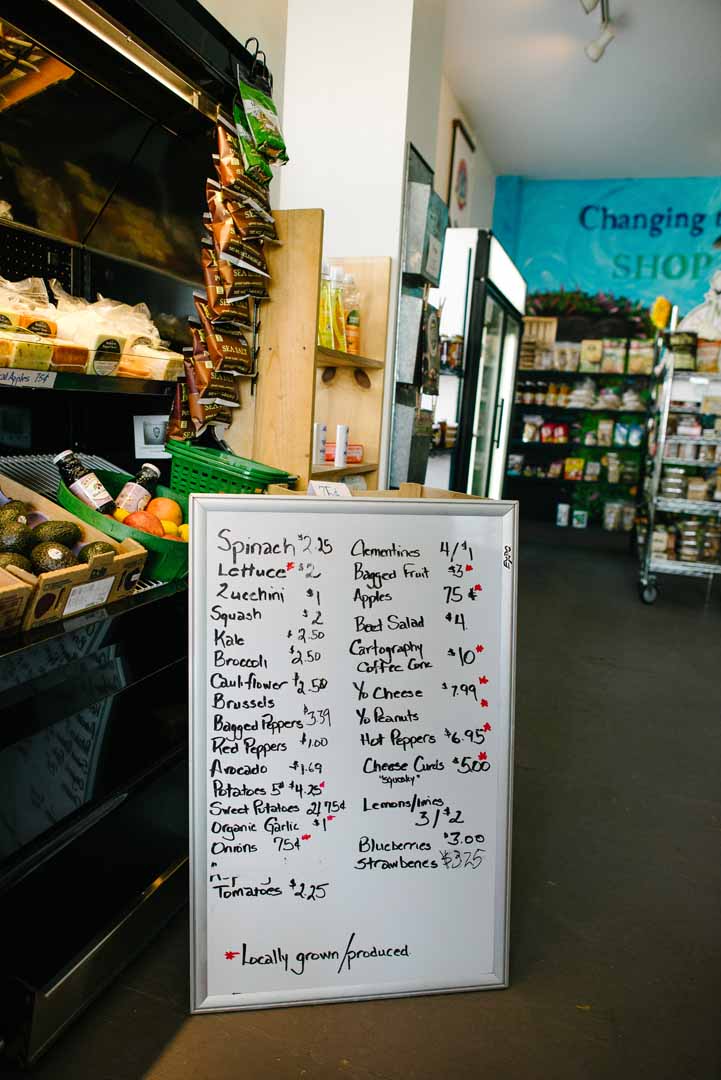 Changing
SHOP
SEA SALT
SEA SALT
SEA SALT
Apples 75¢
Spinach $2.25
Lettuce* $2
Zucchini $1
Squash $2
Kale $2.50
Broccoli $2.50
Cauliflower $2.50
Brussels
Bagged Peppers $3.39
Red Peppers $1.00
Avocado $1.69
Potatoes 5# $4.25*
Sweet Potatoes 2/75¢
Organic Garlic $1*
Onions 75¢*
"
Tomatoes $2.25
Clementines 4/$1
Bagged Fruit $3*
Apples 75¢*
Beet Salad $4
Cartography
Coffee Conc $10*
Yo Cheese $7.99*
Yo Peanuts *
Hot Peppers $6.95*
Cheese Curds $5.00*
"squeaky"
Lemons/limes
3/$2
Blueberries $3.00
Strawberries $3.25
*Locally grown/produced